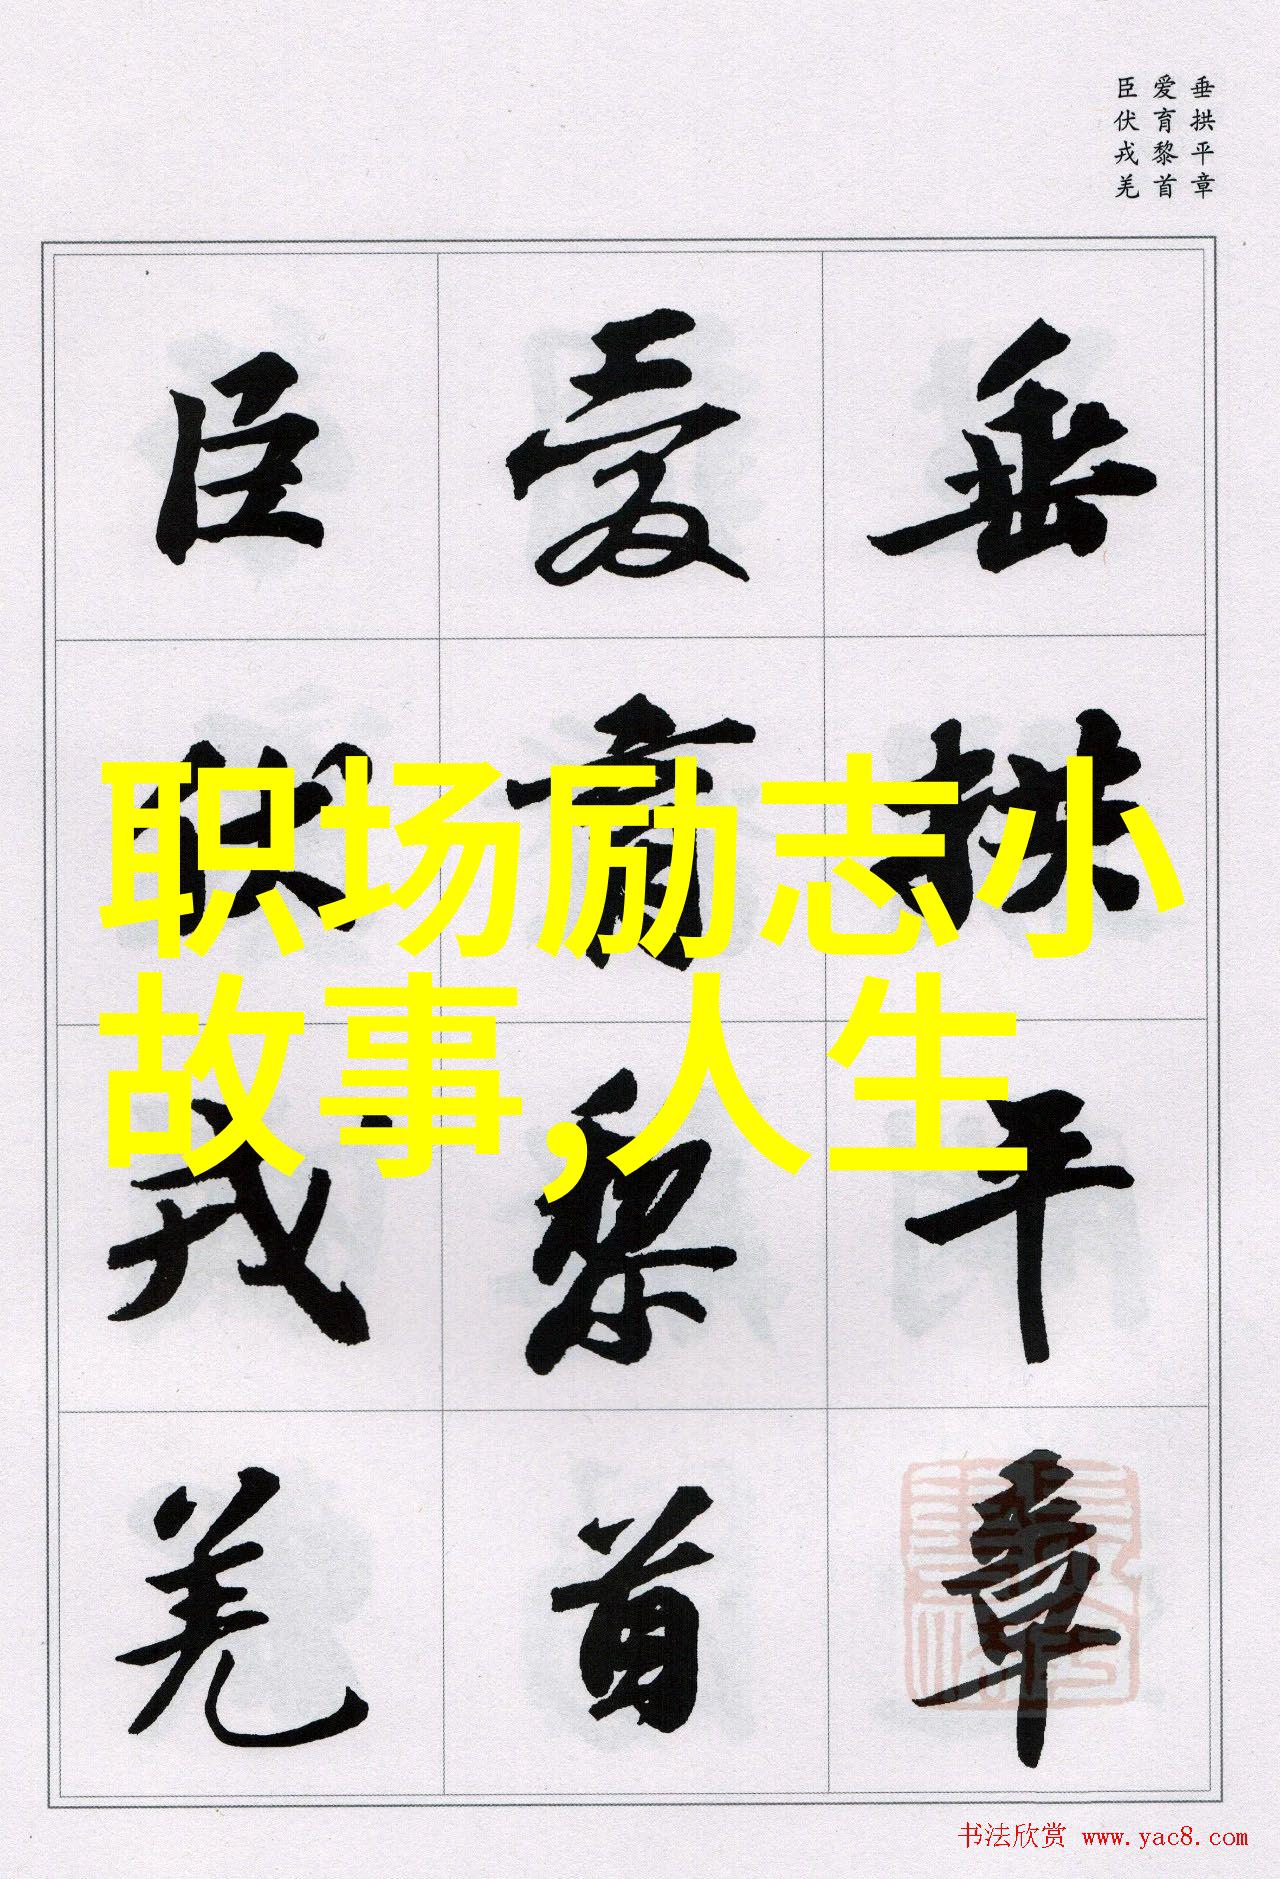 垂拱平章
爱育黎首
臣伏戎羌
垂拱平章
爱育黎首
臣伏戎羌
职场励志小
故事,人生
书法欣赏 www.yac8.com